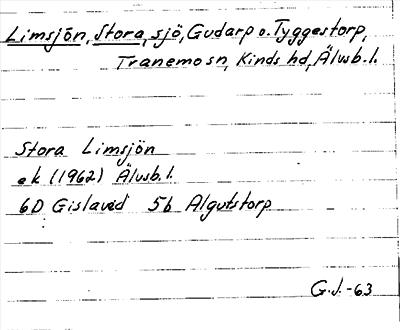 Limsjön, Stora, sjö, Gudarp o. Tyggestorp,
Tranemo sn, Kinds hd, Älvsb. l.
Stora Limsjön
ek (1962) Älvsb. l.
6D Gislaved 5b Algutstorp
G.J.-63